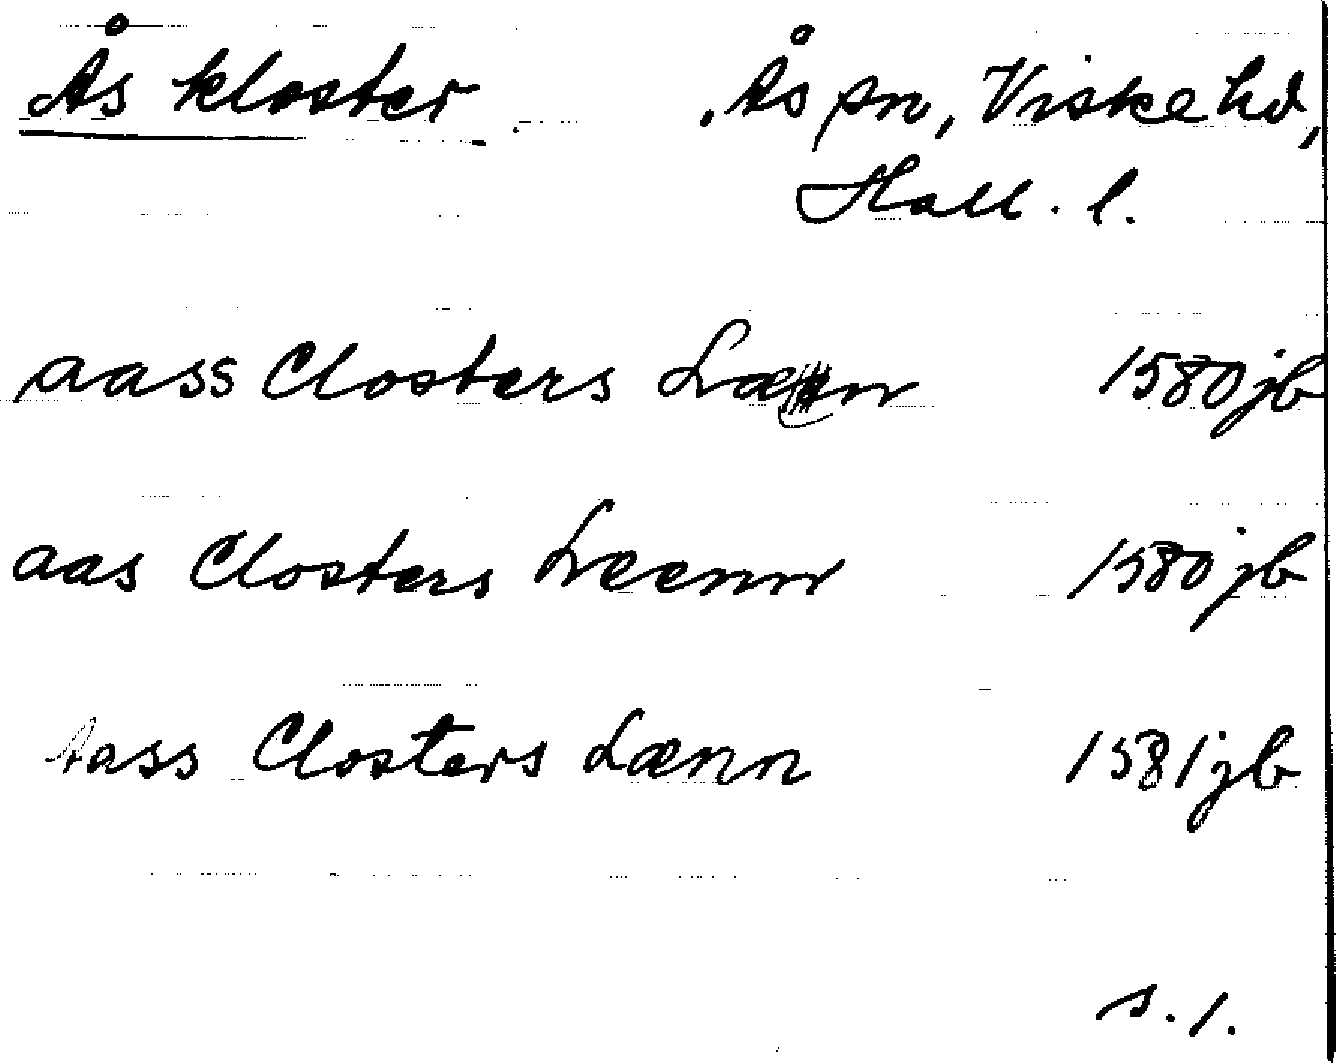 Ås kloster. Ås sn, Viske hd,
Hall. l.
aass Closters Lænn 1580 jb
aas Closters Leenn 1580 jb
Aass Closters Lænn 1581 jb
s. 1.